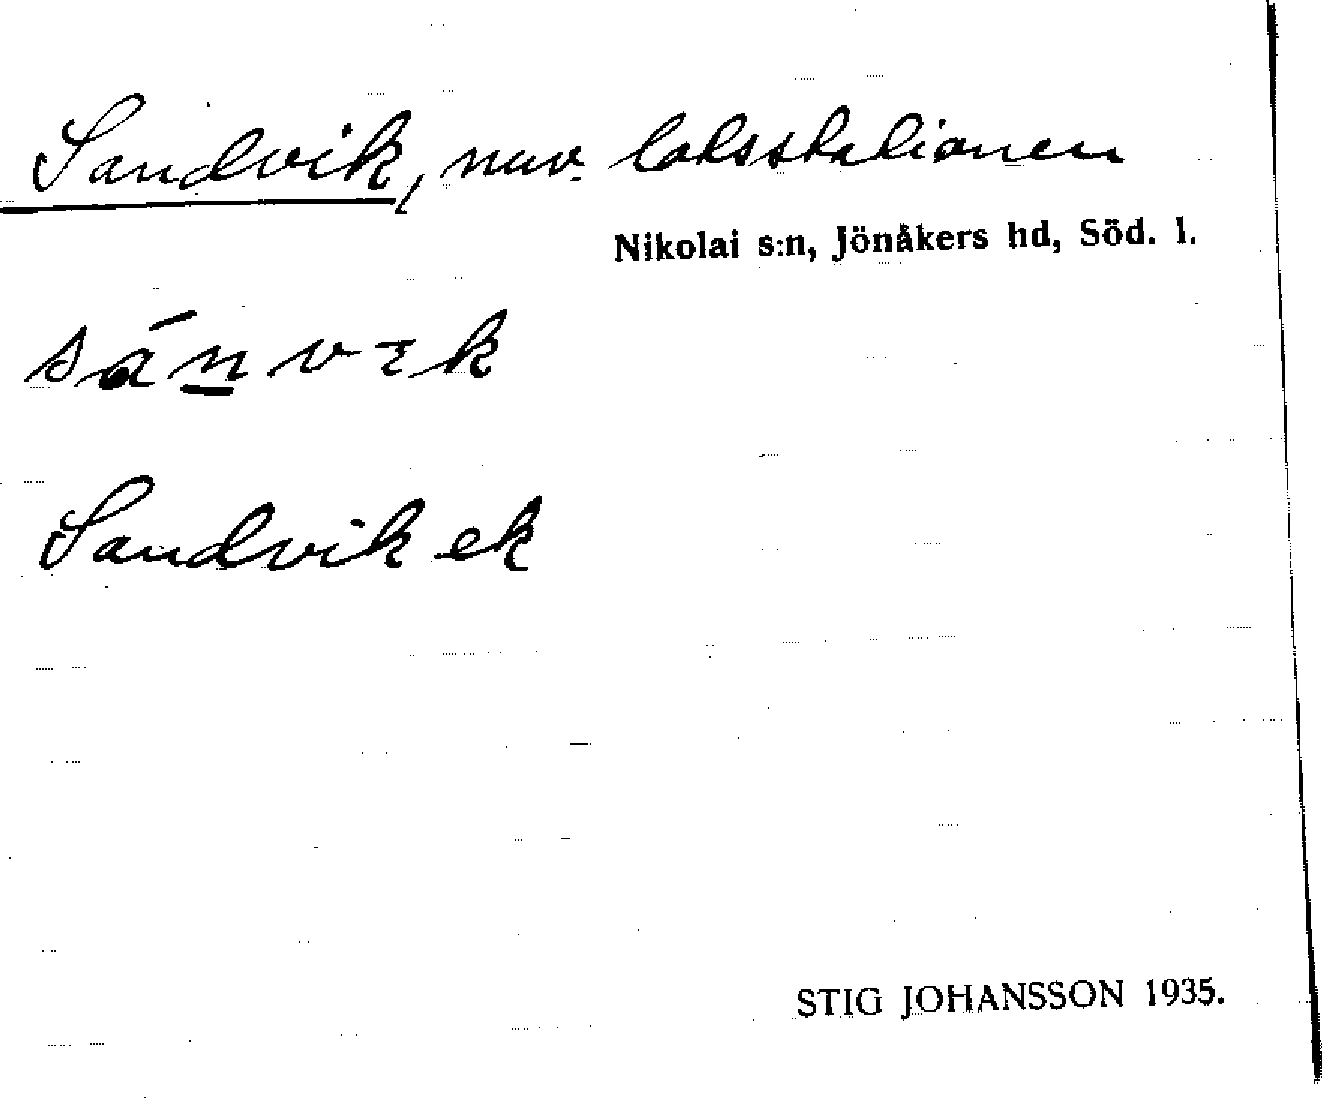 Sandvik, nuv. lotsstationen
Nikolai s:n, Jönåkers hd, Söd. l.
sánvɩk
Sandvik ek
STIG JOHANSSON 1935.